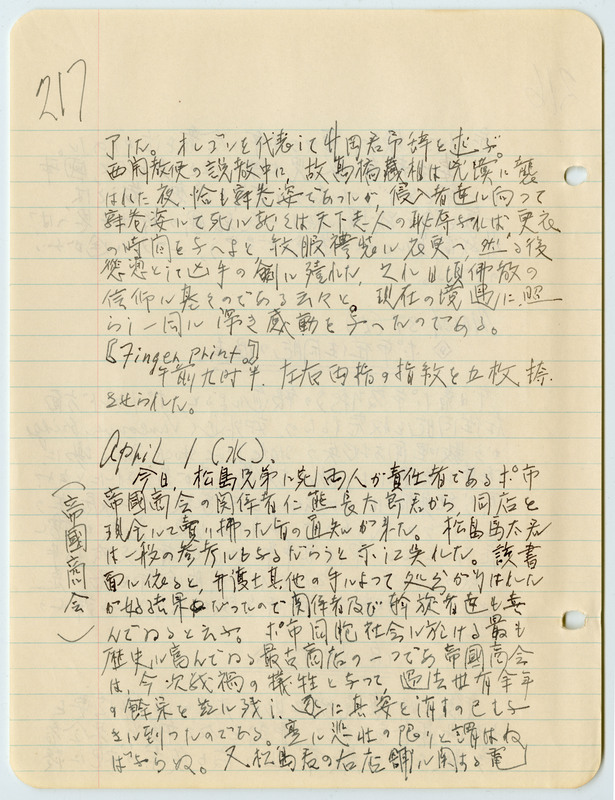 217
了した。オレゴンを代表して井岡君弔辞を述ぶ。
西開教使の説教中に、故高橋蔵相は兇賊に襲
はれた夜、恰も寝巻姿であったが、侵入者達に向って
寝巻姿にて死に就くは天下老人の恥辱なれば、更衣
の時間を与へよと 紋服禮装に衣更へ、然る後
従容として凶手の剣に殪れた、之れ日頃佛教の
信仰に基くのである云々と。現在の境遇に照
らし一同に深き感動を与へたのである。
『Finger print。』
午前九時半、左右両指の指紋を五枚捺
させられた。
April 1 (水)、
今日、松島兄弟に宛 両人が責任者であるポ市
帝國商会の関係者仁熊長太郎君から、同店を
現金にて賣り拂った旨の通知が来た。松島馬太君
は一般の参考にもなるだらうと示して呉れた。該書
面に依ると、弁護士其他の手によって処分が行はれた
が好結果だったので関係者及び斡旋者達も喜
んでゐると云ふ。ポ市同胞社会に於ける最も
歴史に富んでゐる最古商店の一つである帝國商会
は、今次戦禍の犠牲となって、過去廿有余年
の餘栄を
に其姿を消すの已むな
きに到ったのである。寔に悲壮の限りと謂はね
ばならぬ。又松島君の右店舗に関する電
(帝國商会)